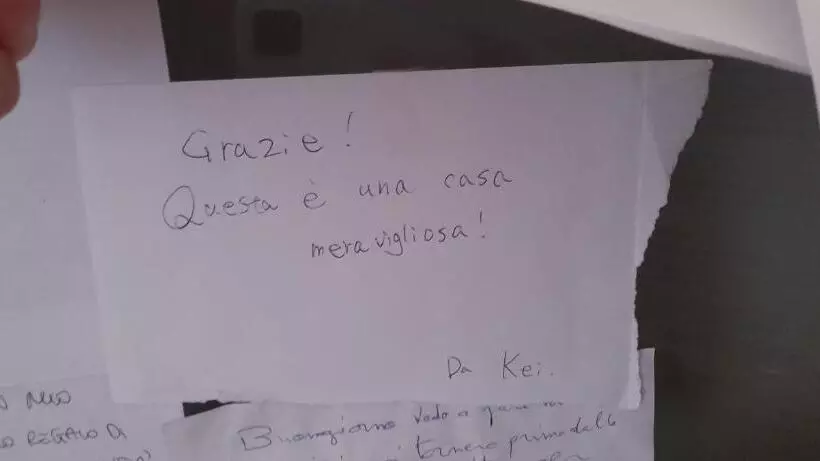 Grazie!
Questa è una casa
meravigliosa!
Da Kei.
REGALO A
Buongiorno Vado a
tornero prima delle